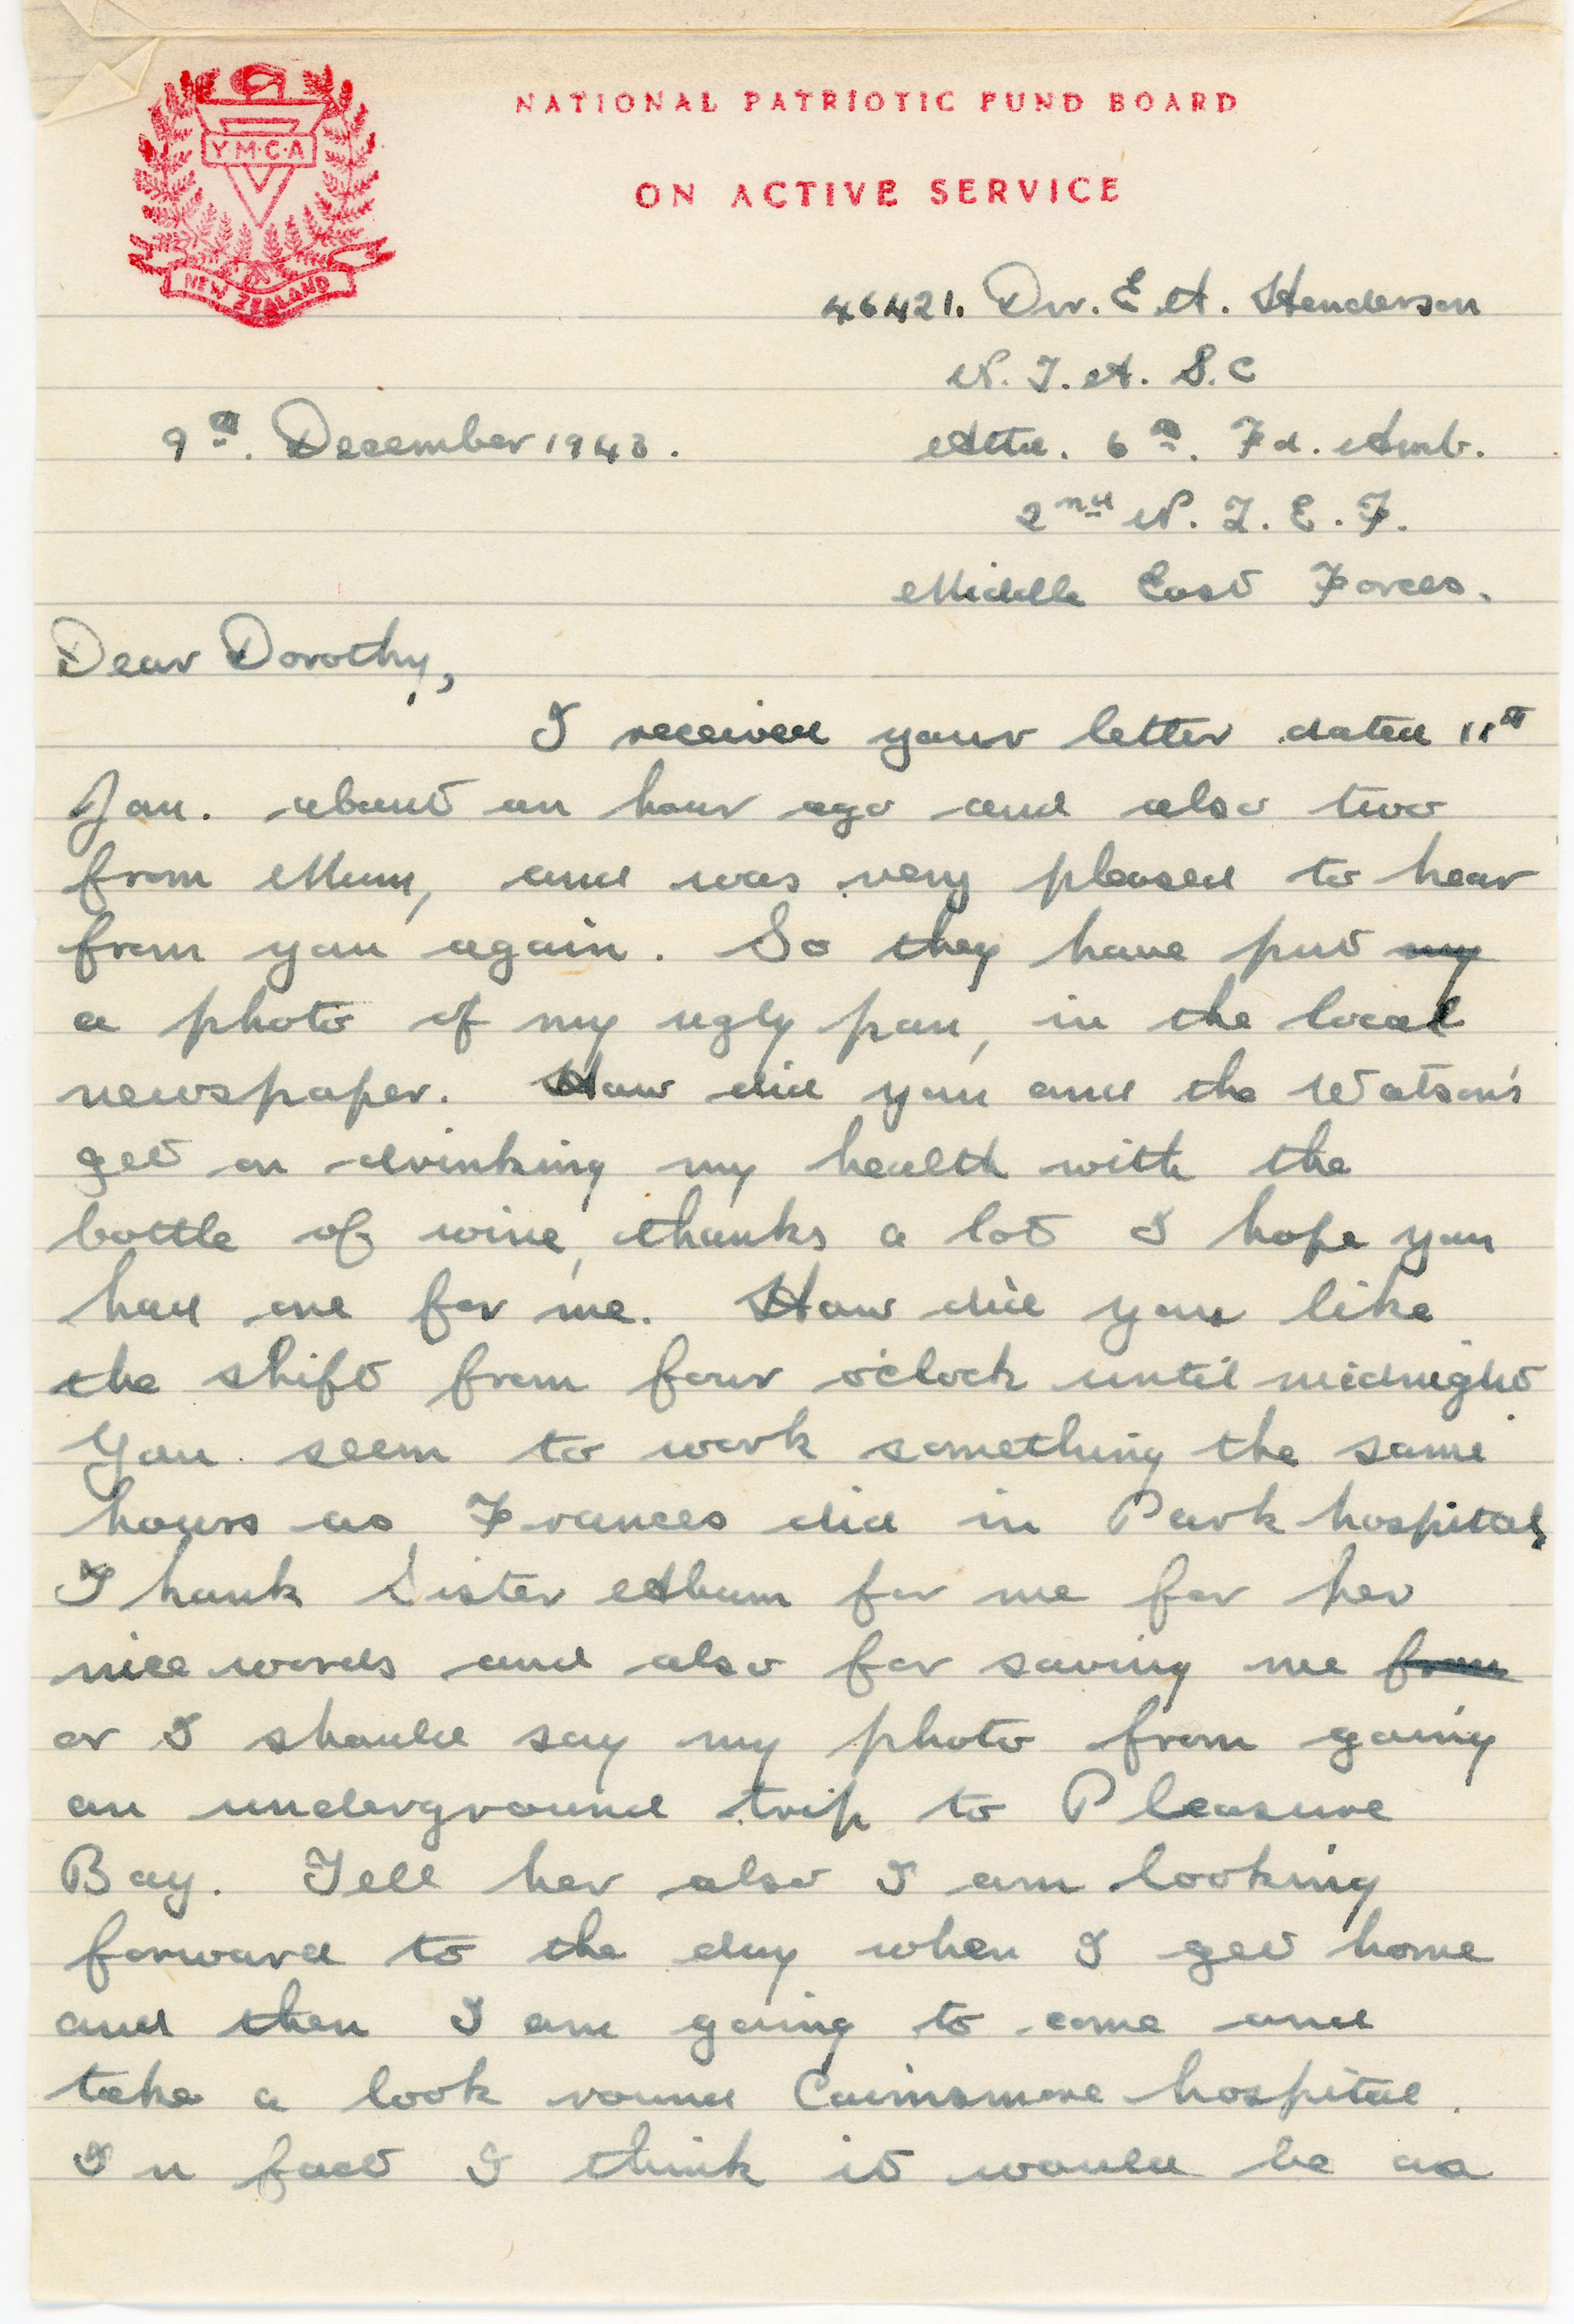 YMCA
NEW ZEALAND
NATIONAL PATRIOTIC FUND BOARD
ON ACTIVE SERVICE
46421. Dvr. E. A. Henderson
N. Z. A. S. C
9th. December 1943.
Attd. 6th. Fd. Amb.
2nd N. Z. E. F.
Middle East Forces.
Dear Dorothy,
I received your letter dated 11th
Jan. about an hour ago and also two
from Mum, and was very pleased to hear
from you again. So they have put my
a photo of my ugly pan, in the local
newspaper. How did you and the Watson's
get on drinking my health with the
bottle of wine, thanks a lot I hope you
had one for me. How did you like
the shift from four o'clock until midnight
You seem to work something the same
hours as Frances did in Park hospital,
Thank Sister Album for me for her
nice words and also for saving me from
or I should say my photo from going
an underground trip to Pleasure
Bay. Tell her also I am looking
forward to the day when I get home
and then I am going to come and
take a look round Cairnsmore hospital.
In fact I think it would be as